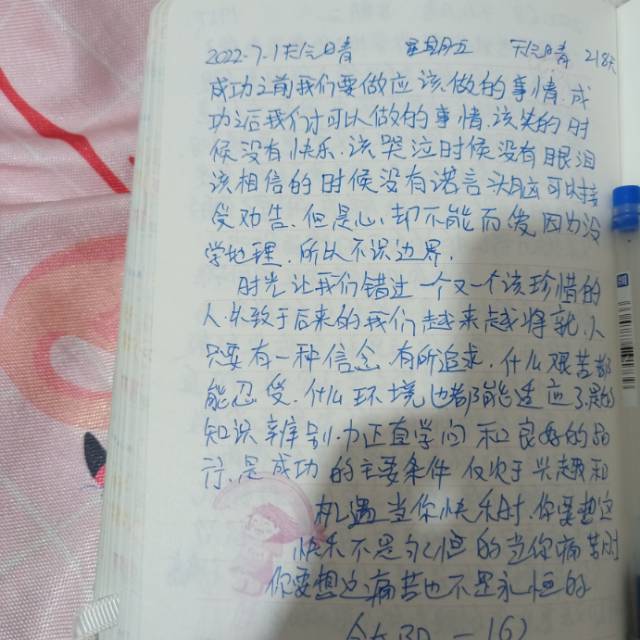 2022.7.1天气晴 星期五 天气晴 218天
成功之前我们要做应该做的事情,成
功之后我们才可以做的事情,该笑的时
候没有快乐,该哭泣时候没有眼泪
该相信的时候没有诺言,头脑可以接
受劝告,但是心,却不能而后,因为没
学地理,所以不识边界,
时光让我们错过一个又一个该珍惜的
人以致于后来的我们越来越将就,人
只要有一种信念,有所追求,什么艰苦都
能忍受,什么环境也都能适应了,
知识辨别力正直学问和良好的品
行,是成功的主要条件,仅次于兴趣和
机遇,当你快乐时,你要想这
快乐不是永恒的当你痛苦时
你要想这痛苦也不是永恒的